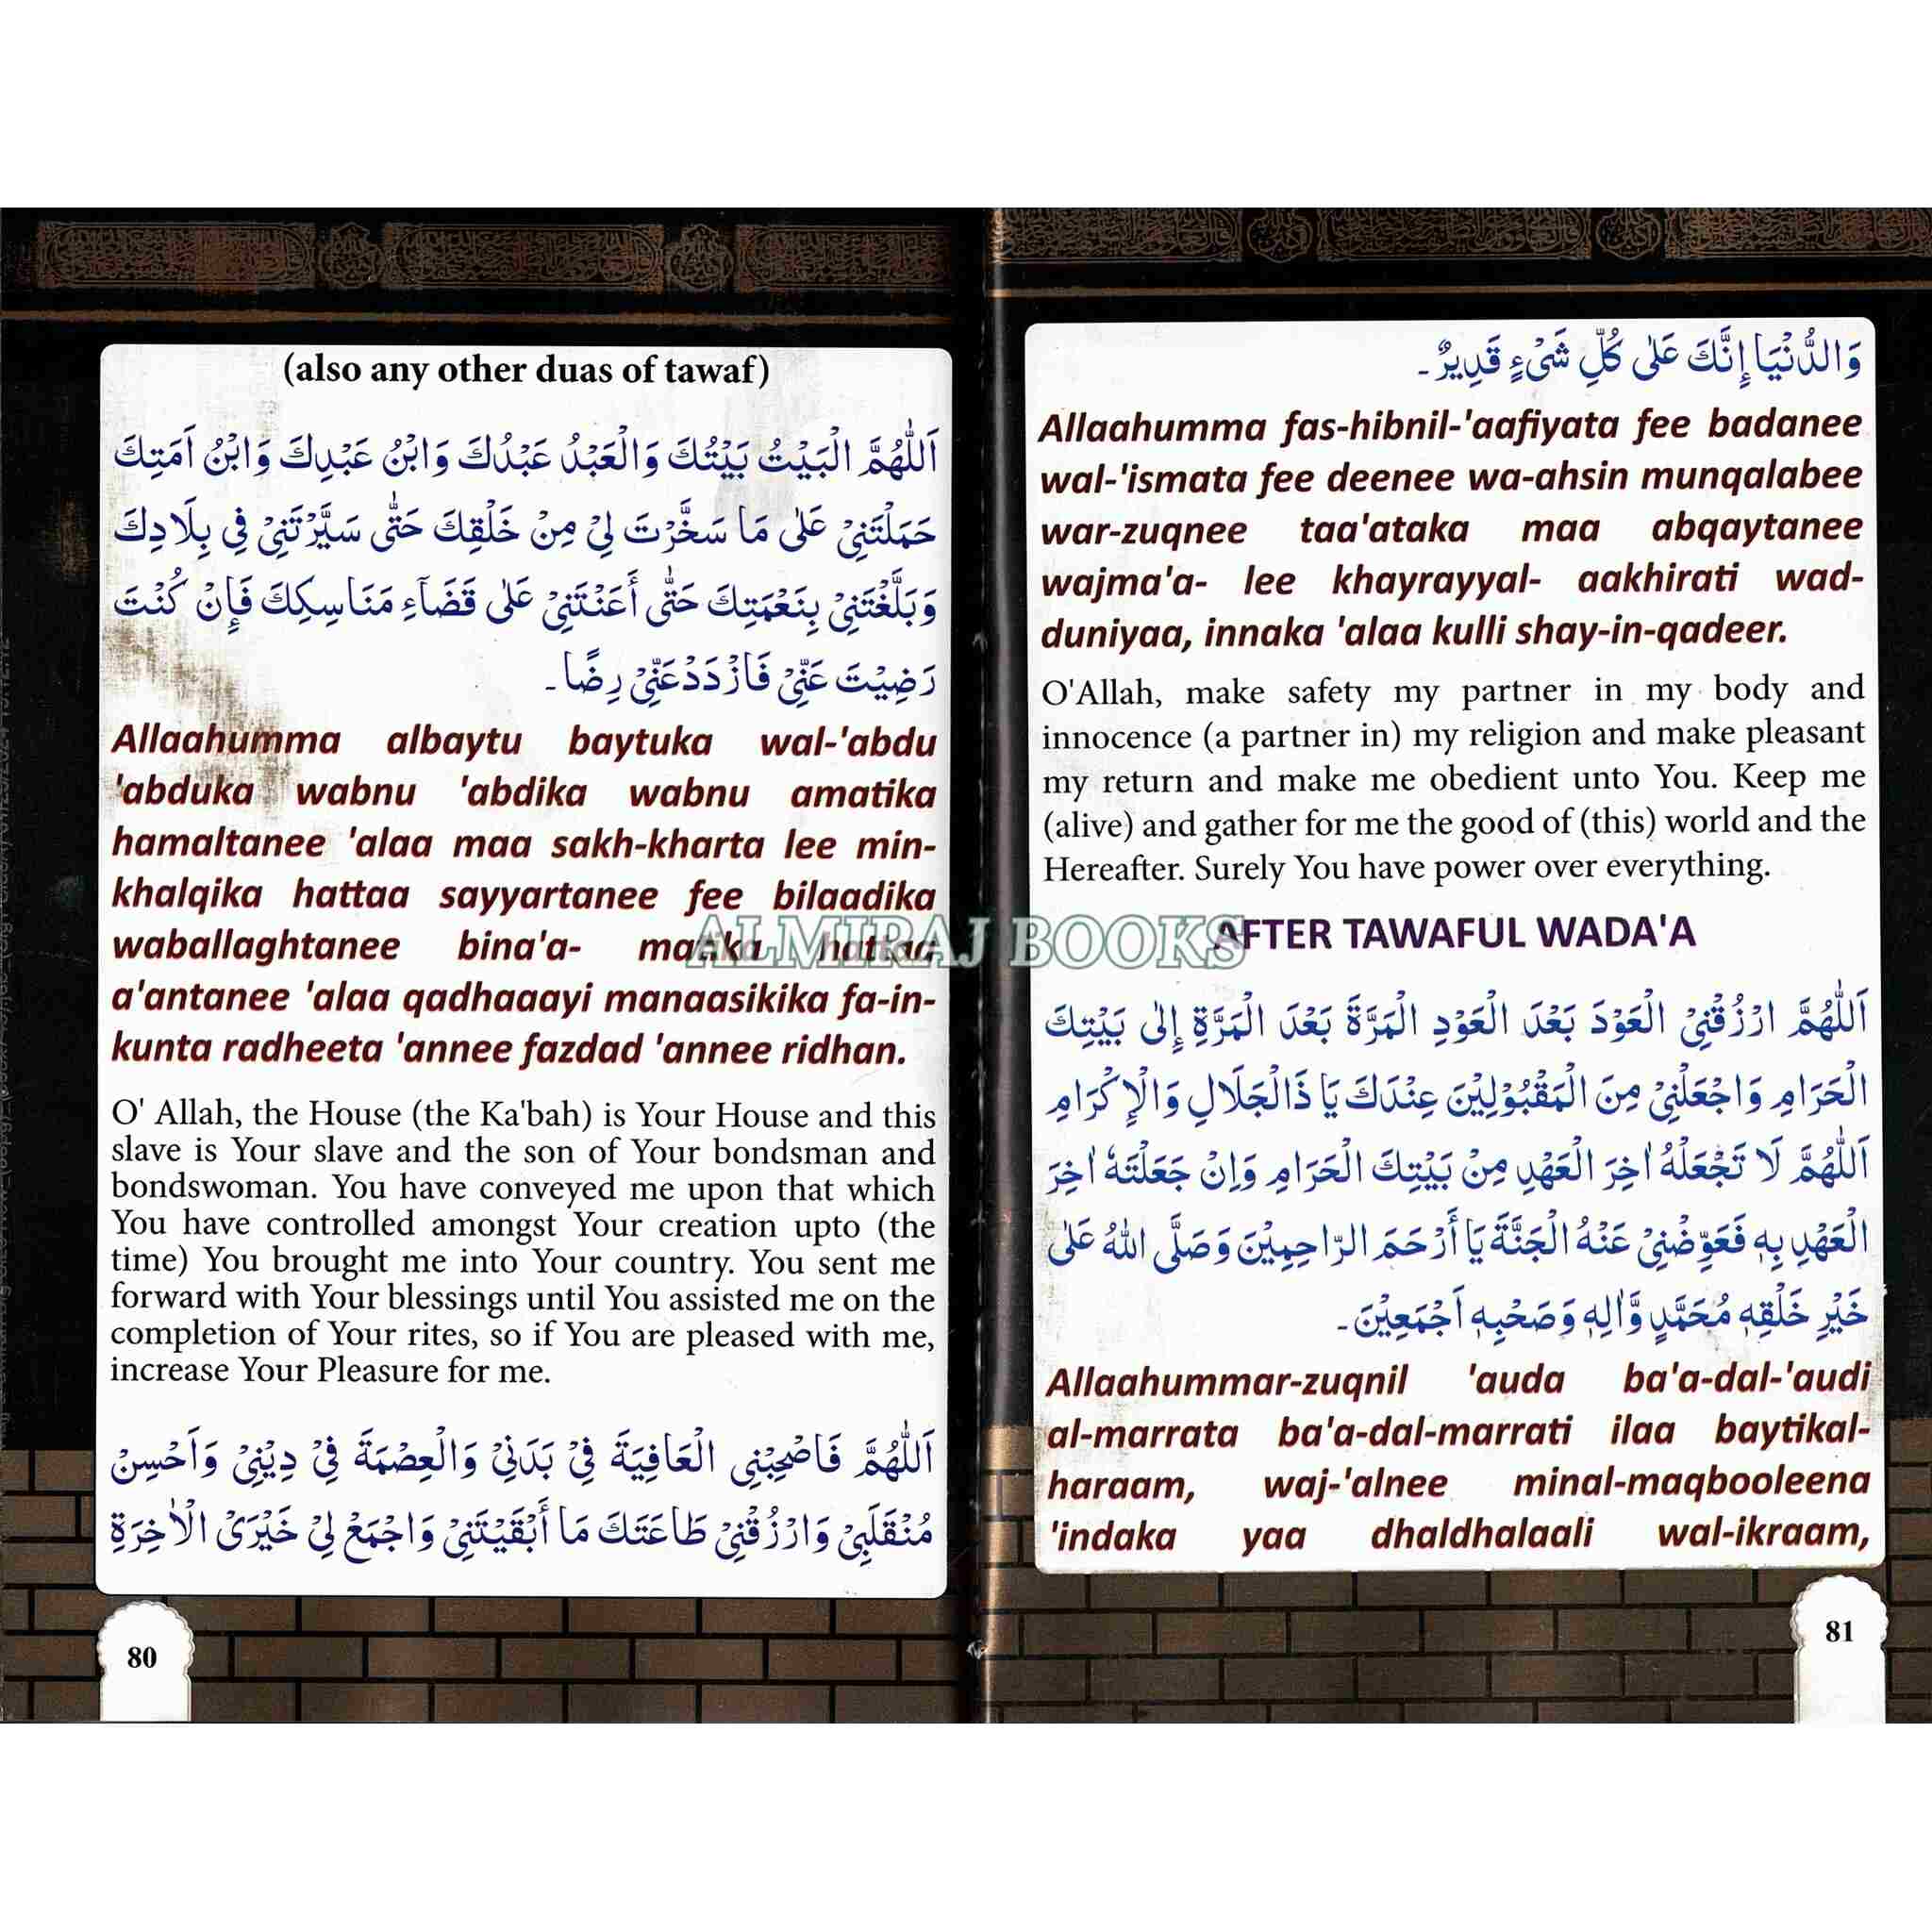 (also any other duas of tawaf)
اَللّٰهُمَّ الْبَيْتُ بَيْتُكَ وَالْعَبْدُ عَبْدُكَ وَابْنُ عَبْدِكَ وَابْنُ اَمَتِكَ
حَمَلْتَنِيْ عَلٰى مَا سَخَّرْتَ لِيْ مِنْ خَلْقِكَ حَتّٰى سَيَّرْتَنِيْ فِي بِلَادِكَ
وَبَلَّغْتَنِيْ بِنَعْمَتِكَ حَتّٰى أَعَنْتَنِيْ عَلٰى قَضَآءِ مَنَاسِكِكَ فَإِنْ كُنْتَ
رَضِيْتَ عَنِّيْ فَازْدَدْعَنِّيْ رِضًا۔
Allaahumma albaytu baytuka wal-'abdu
'abduka wabnu 'abdika wabnu amatika
hamaltanee 'alaa maa sakh-kharta lee min-
khalqika hattaa sayyartanee fee bilaadika
waballaghtanee bina'a- matika hattaa
a'antanee 'alaa qadhaaayi manaasikika fa-in-
kunta radheeta 'annee fazdad 'annee ridhan.
O' Allah, the House (the Ka'bah) is Your House and this
slave is Your slave and the son of Your bondsman and
bondswoman. You have conveyed me upon that which
You have controlled amongst Your creation upto (the
time) You brought me into Your country. You sent me
forward with Your blessings until You assisted me on the
completion of Your rites, so if You are pleased with me,
increase Your Pleasure for me.
اَللّٰهُمَّ فَاصْحِبْنِى الْعَافِيَةَ فِيْ بَدَنِيْ وَالْعِصْمَةَ فِيْ دِيْنِيْ وَاَحْسِنْ
مُنْقَلَبِيْ وَارْزُقْنِيْ طَاعَتَكَ مَا أَبْقَيْتَنِيْ وَاجْمَعْ لِيْ خَيْرَىْ الْاٰخِرَةِ
80
وَالدُّنْيَا إِنَّكَ عَلٰى كُلِّ شَىْءٍ قَدِيرٌ۔
Allaahumma fas-hibnil-'aafiyata fee badanee
wal-'ismata fee deenee wa-ahsin munqalabee
war-zuqnee taa'ataka maa abqaytanee
wajma'a- lee khayrayyal- aakhirati wad-
duniyaa, innaka 'alaa kulli shay-in-qadeer.
O'Allah, make safety my partner in my body and
innocence (a partner in) my religion and make pleasant
my return and make me obedient unto You. Keep me
(alive) and gather for me the good of (this) world and the
Hereafter. Surely You have power over everything.
ALMIRAJ BOOKS
AFTER TAWAFUL WADA'A
اَللّٰهُمَّ ارْزُقْنِيْ الْعَوْدَ بَعْدَ الْعَوْدِ الْمَرَّةَ بَعْدَ الْمَرَّةِ إِلٰى بَيْتِكَ
الْحَرَامِ وَاجْعَلْنِيْ مِنَ الْمَقْبُوْلِيْنَ عِنْدَكَ يَا ذَالْجَلَالِ وَالْإِكْرَامِ
اَللّٰهُمَّ لَا تَجْعَلْهُ اٰخِرَ الْعَهْدِ مِنْ بَيْتِكَ الْحَرَامِ وَاِنْ جَعَلْتَهٗ اٰخِرَ
الْعَهْدِ بِهٖ فَعَوِّضْنِيْ عَنْهُ الْجَنَّةَ يَا أَرْحَمَ الرّاحِمِيْنَ وَصَلَّى اللهُ عَلٰى
خَيْرِ خَلْقِهٖ مُحَمَّدٍ وَّاٰلِهٖ وَصَحْبِهٖ اَجْمَعِيْنَ۔
Allaahummar-zuqnil 'auda ba'a-dal-'audi
al-marrata ba'a-dal-marrati ilaa baytikal-
haraam, waj-'alnee minal-maqbooleena
'indaka yaa dhaldhalaali wal-ikraam,
81